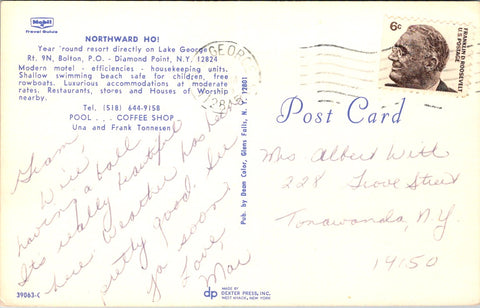 Mobil
Travel Guide
NORTHWARD HO!
Year 'round resort directly on Lake George
Rt. 9N, Bolton, P.O. - Diamond Point, N.Y. 12824
Modern motel - efficiencies - housekeeping units.
Shallow swimming beach safe for children, free
rowboats. Luxurious accommodations at moderate
rates. Restaurants, stores and Houses of Worship
nearby.
Tel. (518) 644-9158
POOL . . . COFFEE SHOP
Una and Frank Tonnesen
Gram,
We're
having a ball
Its really beautiful
here. Weather has been
pretty good. See
ya soon
Love,
Mar
39063-C
Pub. by Dean Color, Glens Falls, N.Y. 12801
dp
MADE BY
DEXTER PRESS, INC.
WEST NYACK, NEW YORK
GEORGE
6c
FRANKLIN D. ROOSEVELT
U.S. POSTAGE
Post Card
Mrs Albert Witt
228 Grove Street
Tonawanda, N.Y.
14150